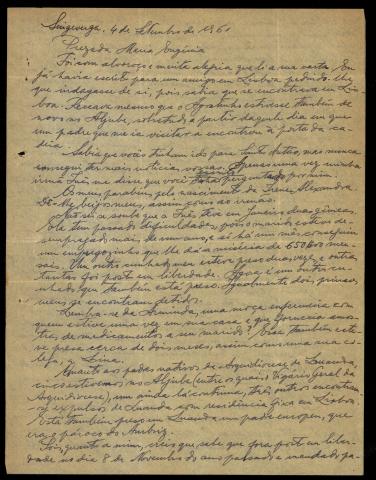 Singeverga, 4 de Setembro de 1961
Prezada Maria Eugénia
Foi com alvoroço e muita alegria que li a sua carta. Eu
já havia escrito para um amigo em Lisboa pedindo-lhe
que indagasse de si, pois sabia que se encontrava em Lis-
boa. Pensava mesmo que o Agostinho estivesse também de
novo no Aljube, sobretudo a partir daquele dia em que
um padre que me ia visitar a encontrou à porta da ca-
deia.
Sabia que vocês tinham ido para tanto outro, mas nunca
consegui ter mais notícias vossas. Apenas uma vez minha
irmã Inês me disse que você tinha perguntado por mim.
Os meus parabéns pelo nascimento da Irene Alexandra
Dê-lhe beijos meus, assim como às irmãs.
Não sei se soube que a Inês teve em Janeiro duas gémeas.
Ela tem passado dificuldades, pois o marido esteve de-
sempregado mais de um ano, e só há um mês conseguiu
um empregozinho que lhe dá a miséria de 650$00 men-
sais. Um outro cunhado meu esteve preso duas vezes e outras
tantas foi posto em liberdade. Agora é um outro cu-
nhado que também está preso. Igualmente dois primos
meus se encontram detidos.
Lembra-se da Arminda, uma moça enfermeira com
quem esteve uma vez em minha casa e que forneceu amos-
tras de medicamentos a seu marido? Essa também este-
ve presa cerca de dois meses, assim como uma sua co-
lega, a Lina.
Quanto aos padres nativos da Arquidiocese de Luanda,
cinco estivemos no Aljube (entre os quais o Vigário Geral da
Arquidiocese), um ainda lá continua, três outros encontram-
-se expulsos de Luanda com residência fixa em Lisboa.
Está também preso em Luanda um padre europeu, que
era o pároco do Ambriz.
Pois quanto a mim, creio que sabe que fora posto em liber-
dade no dia 8 de Novembro do ano passado e mandado pa-